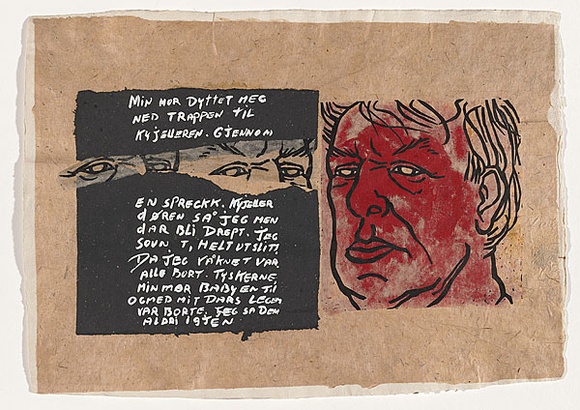 MIN MOR DYTTET MEG
NED TRAPPEN TIL
KYJELLEREN. GJENNOM
EN SPRECKK. KYJELLER
DØREN SÅ JEG MEN
DAR BLI DREPT. JEG
SOVN. T, HELT UTSLITT
DA JEG VÅKNET VAR
ALLE BORT. TYSKERNE,
MIN MOR BABYEN TI
OGMED MIT DARS LEGEM
VAR BORTE. JEG SA DEM
ALDRI IGJEN